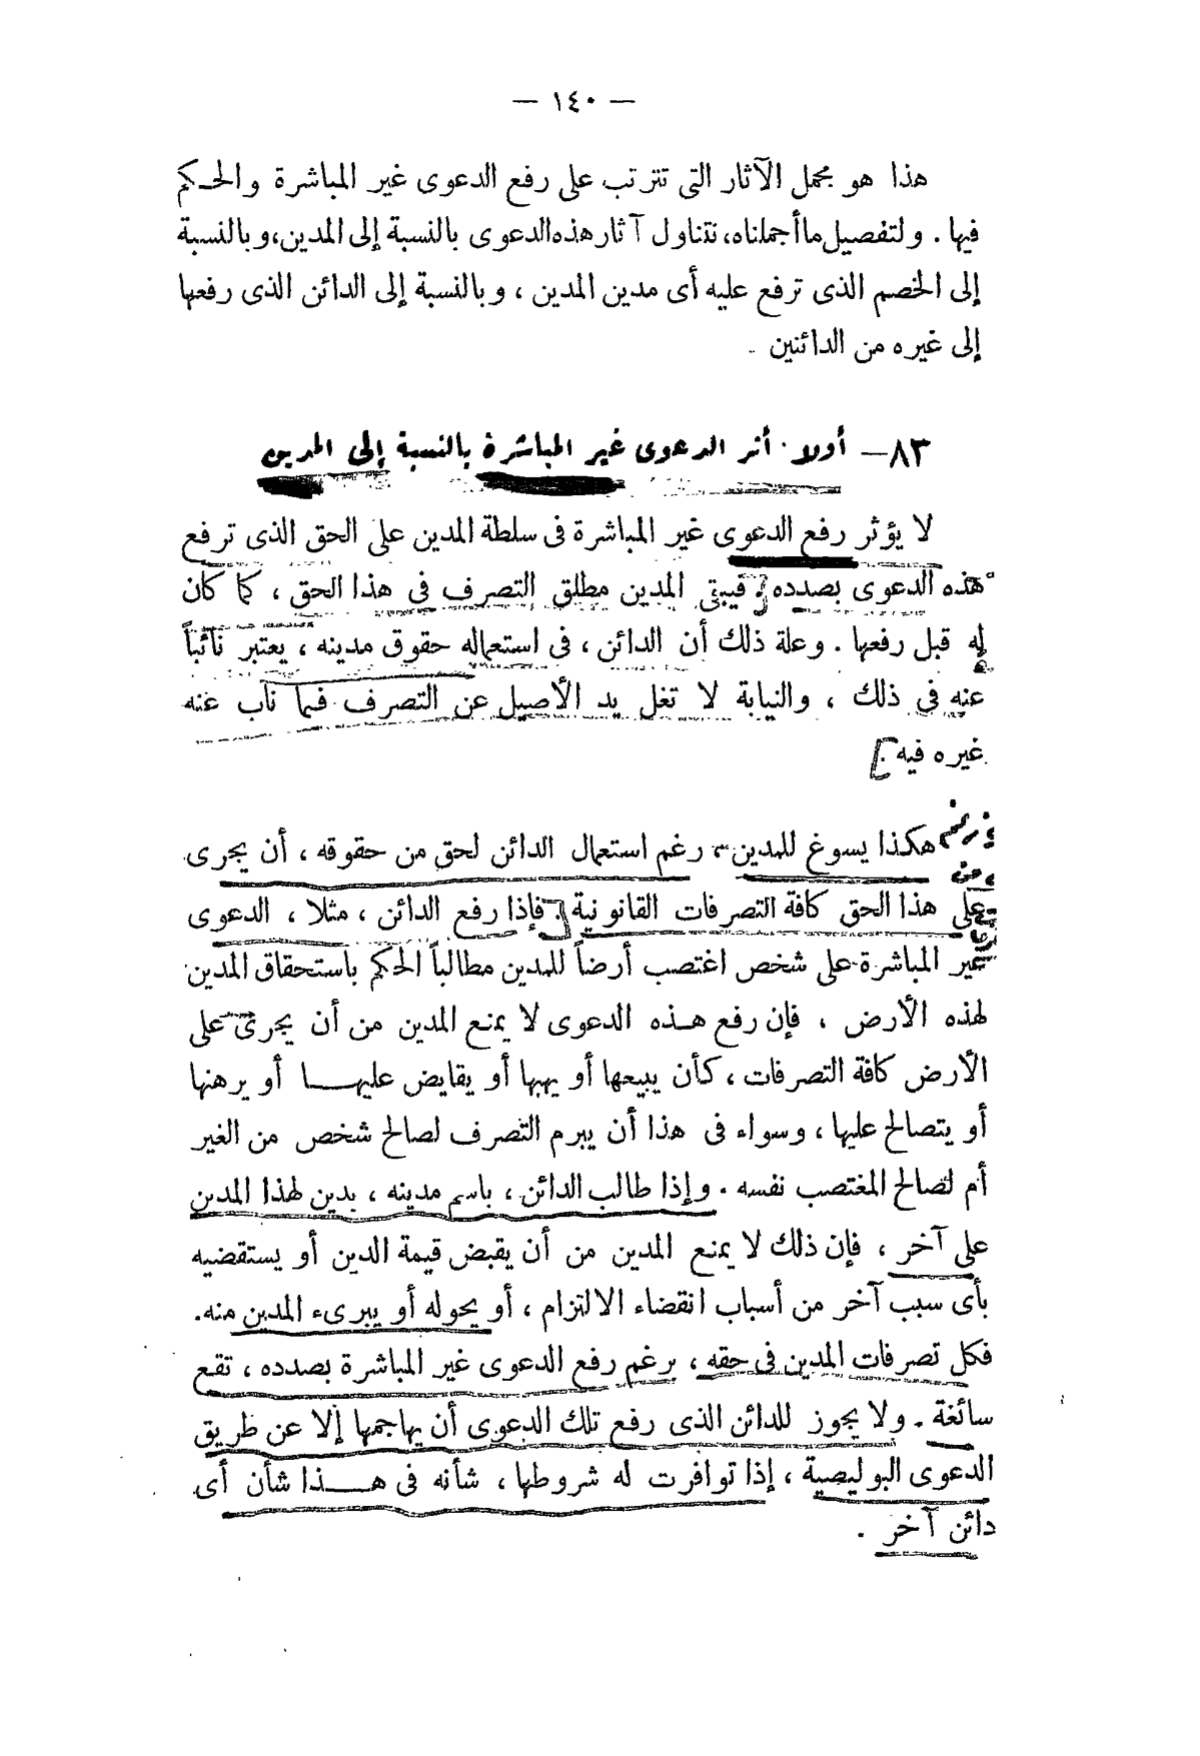 — ١٤٠ —
هذا هو مجمل الآثار التى تترتب على رفع الدعوى غير المباشرة والحكم
فيها . ولتفصيل ما أجملناه، نتناول آثار هذه الدعوى بالنسبة إلى المدين، وبالنسبة
إلى الخصم الذى ترفع عليه أى مدين المدين ، وبالنسبة إلى الدائن الذى رفعها
إلى غيره من الدائنين .
٨٣ — أولا . أثر الدعوى غير المباشرة بالنسبة إلى المدين
لا يؤثر رفع الدعوى غير المباشرة فى سلطة المدين على الحق الذى ترفع
هذه الدعوى بصدده . فيبقى المدين مطلق التصرف فى هذا الحق ، كما كان
له قبل رفعها . وعلة ذلك أن الدائن ، فى استعماله حقوق مدينه ، يعتبر نائباً
عنه فى ذلك ، والنيابة لا تغل يد الأصيل عن التصرف فيما ناب عنه
غيره فيه .
هكذا يسوغ للمدين ، رغم استعمال الدائن لحق من حقوقه ، أن يجرى
على هذا الحق كافة التصرفات القانونية . فإذا رفع الدائن ، مثلا ، الدعوى
غير المباشرة على شخص اغتصب أرضاً للمدين مطالباً الحكم باستحقاق المدين
لهذه الأرض ، فإن رفع هذه الدعوى لا يمنع المدين من أن يجرى على
الأرض كافة التصرفات ، كأن يبيعها أو يهبها أو يقايض عليها أو يرهنها
أو يتصالح عليها ، وسواء فى هذا أن يبرم التصرف لصالح شخص من الغير
أم لصالح المغتصب نفسه . وإذا طالب الدائن ، باسم مدينه ، بدين لهذا المدين
على آخر ، فإن ذلك لا يمنع المدين من أن يقبض قيمة الدين أو يستقضيه
بأى سبب آخر من أسباب انقضاء الالتزام ، أو يحوله أو يبرىء المدين منه .
فكل تصرفات المدين فى حقه ، برغم رفع الدعوى غير المباشرة بصدده ، تقع
سائغة . ولا يجوز للدائن الذى رفع تلك الدعوى أن يهاجمها إلا عن طريق
الدعوى البوليصية ، إذا توافرت له شروطها ، شأنه فى هذا شأن أى
دائن آخر .